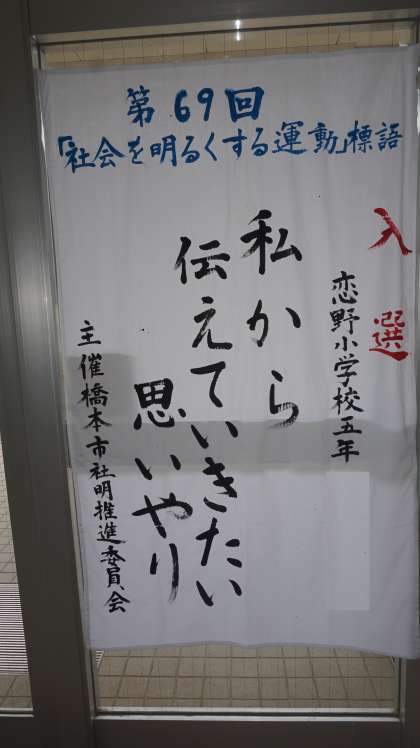 第69回
「社会を明るくする運動」標語
入選
恋野小学校五年
私から
伝えていきたい
思いやり
主催橋本市社明推進委員会